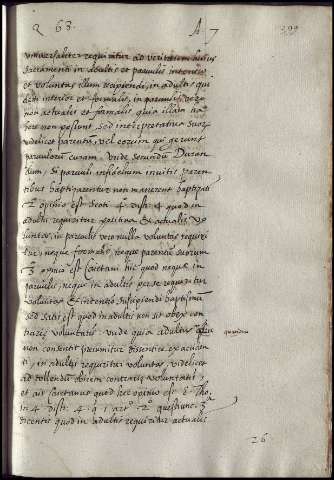 263. A 7 399
universaliter requiritur ad veritatem huius
sacramenti in adultis et parvulis intentio
et voluntas illum recipiendi, in adultis qui
dem interior et formalis, in parvulis vero
non actualis et formalis quia illam ha
bere non possunt sed interpretativa suor
videlicet parentũ, vel eorum qui gerunt
parvulorũ curam. Unde secundũ Duran
dum, si parvuli infidelium invitis paren
tibus baptizarentur non manerent baptizati
2ᵃ opinio est Scoti 4 dist. 4 quod in
adultis requiritur positiva et actualis vo
luntas, in parvulis vero nulla voluntas requiri
tur, neque formalis neque parentũ suorum
3ᵃ opinio est Caietani hic quod neque in
parvulis, neque in adultis per se requiritur
voluntas et intentio suscipiendi baptismũ
sed satis est quod in adultis non sit obex con
trariȩ voluntatis: unde quia adultus
non consentit praesumitur dissentire
in adultis requiritur voluntas, videlicet
ad tollendũ obicem contrariȩ voluntatis,
et ait Caietanus quod hȩc opinio est S. Tho.
in 4 dist. 4. q. 1 artº 2º questiunc. 3ᵃ
dicentis quod in adultis requiritur actualis
26